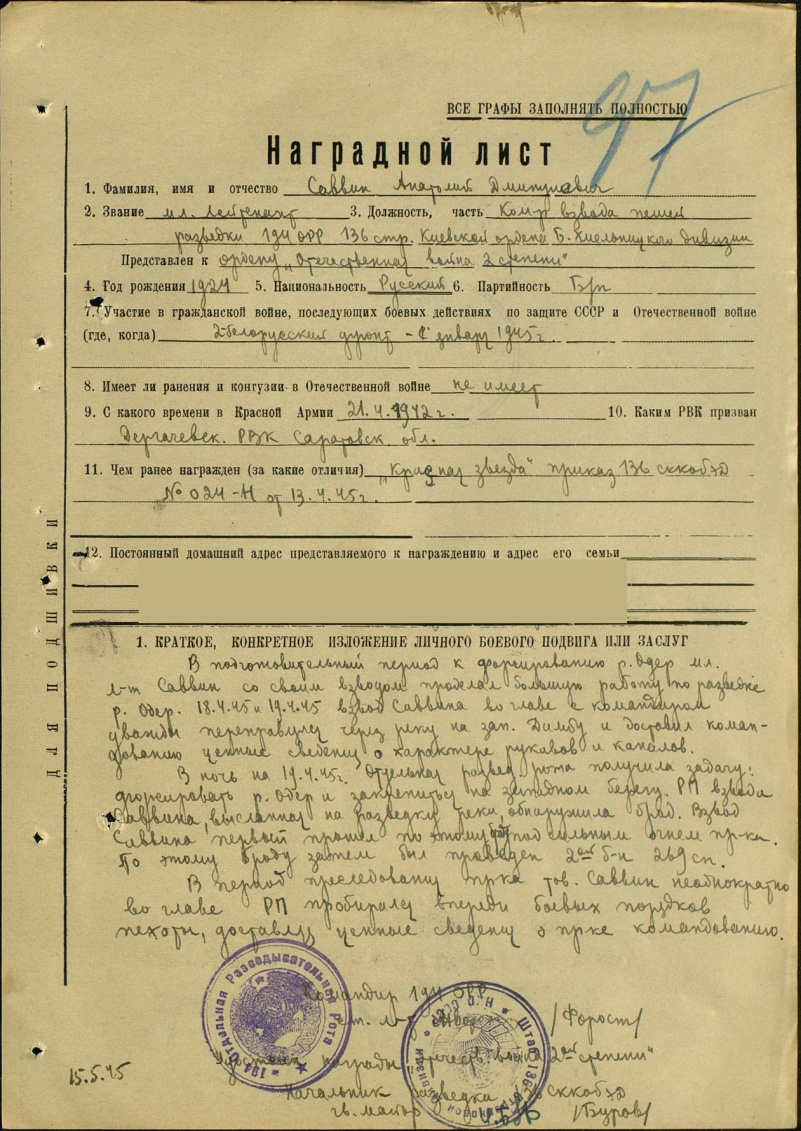 97
ВСЕ ГРАФЫ ЗАПОЛНЯТЬ ПОЛНОСТЬЮ
Наградной лист
1. Фамилия, имя и отчество Саввин Анатолий Дмитриевич
2. Звание мл. лейтенант 3. Должность, часть Ком-р взвода пешей
разведки 194 ОРР 136 стр. Киевской ордена Б. Хмельницкого дивизии
Представлен к ордену „Отечественная война 2 степени"
4. Год рождения 1924 5. Национальность Русский 6. Партийность Б/п
7. Участие в гражданской войне, последующих боевых действиях по защите СССР и Отечественной войне
(где, когда) 2-белорусский фронт - с января 1945 г.
8. Имеет ли ранения и контузии в Отечественной войне не имеет
9. С какого времени в Красной Армии 21.4.1942 г. 10. Каким РВК призван
Дергачевск. РВК Саратовск. обл.
11. Чем ранее награжден (за какие отличия) „Красная звезда" приказ 136 сккобхд
№ 024-Н от 13.4.45 г.
12. Постоянный домашний адрес представляемого к награждению и адрес его семьи
ДЛЯ ПОДШИВКИ
1. КРАТКОЕ, КОНКРЕТНОЕ ИЗЛОЖЕНИЕ ЛИЧНОГО БОЕВОГО ПОДВИГА ИЛИ ЗАСЛУГ
В подготовительный период к форсированию р. Одер мл.
л-т Саввин со своим взводом проделал большую работу по разведке
р. Одер. 18.4.45 и 19.4.45 взвод Саввина во главе с командиром
дважды переправился через реку на зап. Дамбу и доставил коман-
дованию ценные сведения о характере рукавов и каналов.
В ночь на 19.4.45 г. Отдельная развед. рота получила задачу:
форсировать р. Одер и закрепиться на западном берегу. РП взвода
Саввина, высланная на разведку реки, обнаружила брод. Взвод
Саввина первый прошел по этому под сильным огнем пр-ка.
По этому броду затем был проведен 2ой б-н 269 сп.
В период преследования пр-ка тов. Саввин неоднократно
во главе РП пробирался впереди боевых порядков
пехоты, доставляя ценные сведения о пр-ке командованию.
Командир 194 ОРР
ст. л-т /Форост/
194 Отдельная Разведывательная Рота
Штаб 136
Достоин награды „Отечеств. война 2ой степени"
15.5.45
Начальник разведки 136 сккобхд
гв. майор /Буров/